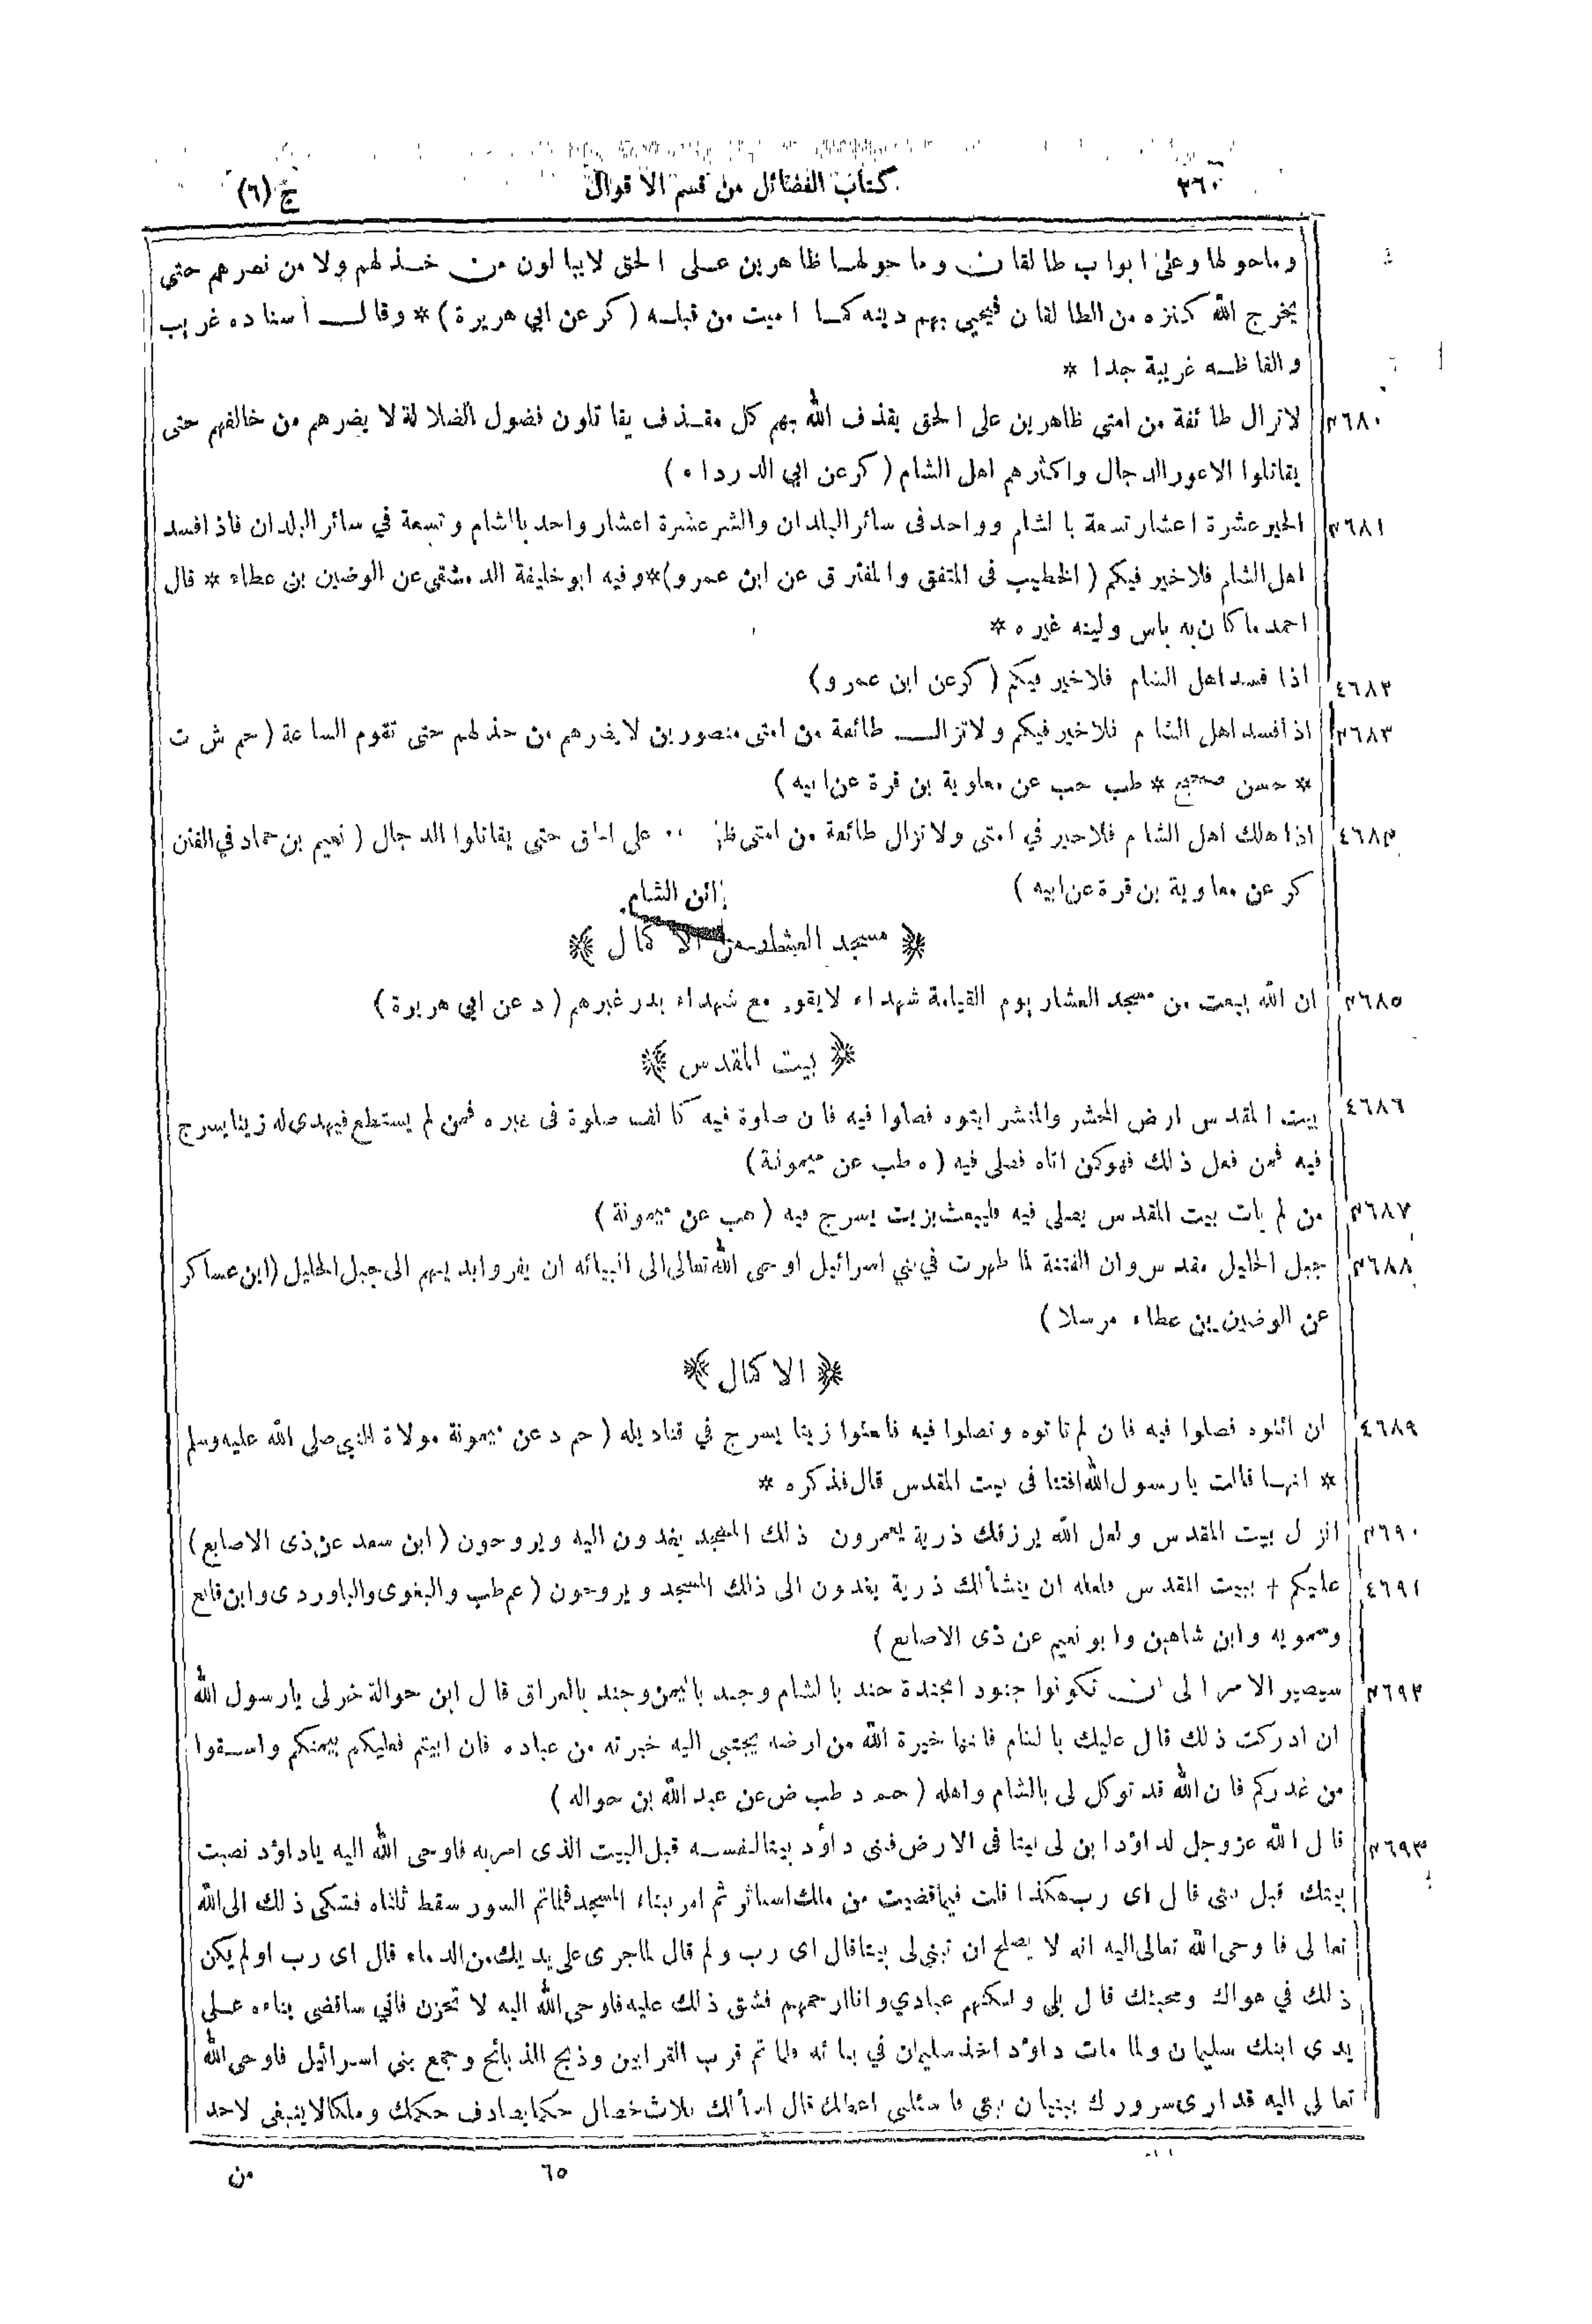 ٢٦٠ كتاب الفضائل من قسم الاقوال ج (٦)
وماحولها وعلى ابواب طالقان وماحولها ظاهرين على الحق لايبالون من خذلهم ولا من نصرهم حتى
يخرج الله كنزه من الطالقان فيحيى بهم دينه كما اميت من قبله ( كر عن ابي هريرة ) * وقال اسناده غريب
والفاظه غريبة جدا *
٤٦٨٠ لاتزال طائفة من امتى ظاهرين على الحق يقذف الله بهم كل مقذف يقاتلون فضول الضلالة لا يضرهم من خالفهم حتى
يقاتلوا الاعور الدجال واكثرهم اهل الشام ( كر عن ابي الدرداء )
٤٦٨١ الخير عشرة اعشار تسعة بالشام وواحد فى سائر البلدان والشر عشرة اعشار واحد بالشام وتسعة في سائر البلدان فاذ افسد
اهل الشام فلاخير فيكم ( الخطيب فى المتفق والمفترق عن ابن عمرو ) * وفيه ابو خليفة الدمشقى عن الوضين بن عطاء * قال
احمد ما كان به باس ولينه غيره *
٤٦٨٢ اذا فسد اهل الشام فلاخير فيكم ( كر عن ابن عمرو )
٤٦٨٣ اذ افسد اهل الشام فلاخير فيكم ولاتزال طائفة من امتى منصورين لايضرهم من خذلهم حتى تقوم الساعة ( حم ش ت
* حسن صحيح * طب حب عن معاوية بن قرة عن ابيه )
٤٦٨٤ اذا هلك اهل الشام فلاخير في امتى ولاتزال طائفة من امتى على الحق حتى يقاتلوا الدجال ( نعيم بن حماد في الفتن
كر عن معاوية بن قرة عن ابيه )
ائن الشام
﴿ مسجد العشار من الاكمال ﴾
٤٦٨٥ ان الله يبعث من مسجد العشار يوم القيامة شهداء لايقوم مع شهداء بدر غيرهم ( د عن ابي هريرة )
﴿ بيت المقدس ﴾
٤٦٨٦ بيت المقدس ارض المحشر والمنشر ايتوه فصلوا فيه فان صلوة فيه كالف صلوة فى غيره فمن لم يستطع فيهدى له زيتا يسرج
فيه فمن فعل ذلك فهو كمن اتاه فصلى فيه ( ه طب عن ميمونة )
٤٦٨٧ من لم يات بيت المقدس يصلى فيه فليبعث بزيت يسرج فيه ( هب عن ميمونة )
٤٦٨٨ جبل الخليل مقدس وان الفتنة لما ظهرت في بني اسرائيل اوحى الله تعالى الى انبيائه ان يفروا بدينهم الى جبل الخليل ( ابن عساكر
عن الوضين بن عطاء مرسلا )
﴿ الاكمال ﴾
٤٦٨٩ ان ائتوه فصلوا فيه فان لم تاتوه وتصلوا فيه فابعثوا زيتا يسرج في قناديله ( حم د عن ميمونة مولاة النبي صلى الله عليه وسلم
* انها قالت يا رسول الله افتنا فى بيت المقدس قال فذكره *
٤٦٩٠ انزل بيت المقدس ولعل الله يرزقك ذرية يعمرون ذلك المسجد يغدون اليه ويروحون ( ابن سعد عن ذى الاصابع )
٤٦٩١ عليكم + ببيت المقدس فلعله ان ينشأ لك ذرية يغدون الى ذلك المسجد ويروحون ( عم طب والبغوى والباوردى وابن قانع
وسمويه وابن شاهين وابو نعيم عن ذى الاصابع )
٤٦٩٢ سيصير الامر الى ان تكونوا جنودا مجندة جند بالشام وجند باليمن وجند بالعراق قال ابن حوالة خر لى يا رسول الله
ان ادركت ذلك قال عليك بالشام فانها خيرة الله من ارضه يجتبى اليه خيرته من عباده فان ابيتم فعليكم بيمنكم واسقوا
من غدركم فان الله قد توكل لى بالشام واهله ( حم د طب ض عن عبد الله بن حواله )
٤٦٩٣ قال الله عز وجل لداود ابن لى بيتا فى الارض فبنى داود بيتا لنفسه قبل البيت الذى امر به فاوحى الله اليه ياداود نصبت
بيتك قبل بيتى قال اى رب هكذا قلت فيما قضيت من ملك استاثر ثم امر ببناء المسجد فلما تم السور سقط ثلثاه فشكى ذلك الى الله
تعالى فاوحى الله تعالى اليه انه لا يصلح ان تبنى لى بيتا قال اى رب ولم قال لما جرى على يديك من الدماء قال اى رب اولم يكن
ذلك في هواك ومحبتك قال بلى ولكنهم عبادي وانا ارحمهم فشق ذلك عليه فاوحى الله اليه لا تحزن فاني ساقضى بناءه على
يدى ابنك سليمان ولما مات داود اخذ سليمان في بنائه فلما تم قرب القرابين وذبح الذبائح وجمع بنى اسرائيل فاوحى الله
تعالى اليه قد ارى سرورك ببنيان بيتي فاسئلنى اعطك قال اسألك ثلاث خصال حكما يصادف حكمك وملكا لاينبغى لاحد
٦٥ من